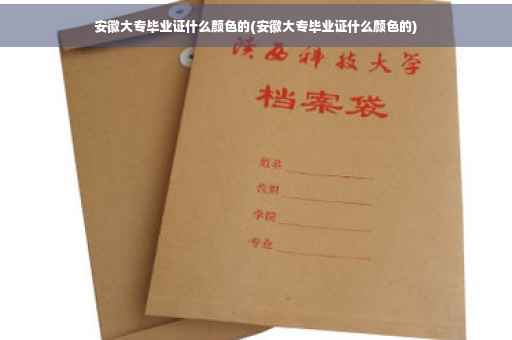 安徽大专毕业证什么颜色的(安徽大专毕业证什么颜色的)
陕西科技大学
档案袋
姓名
性别
学院
专业